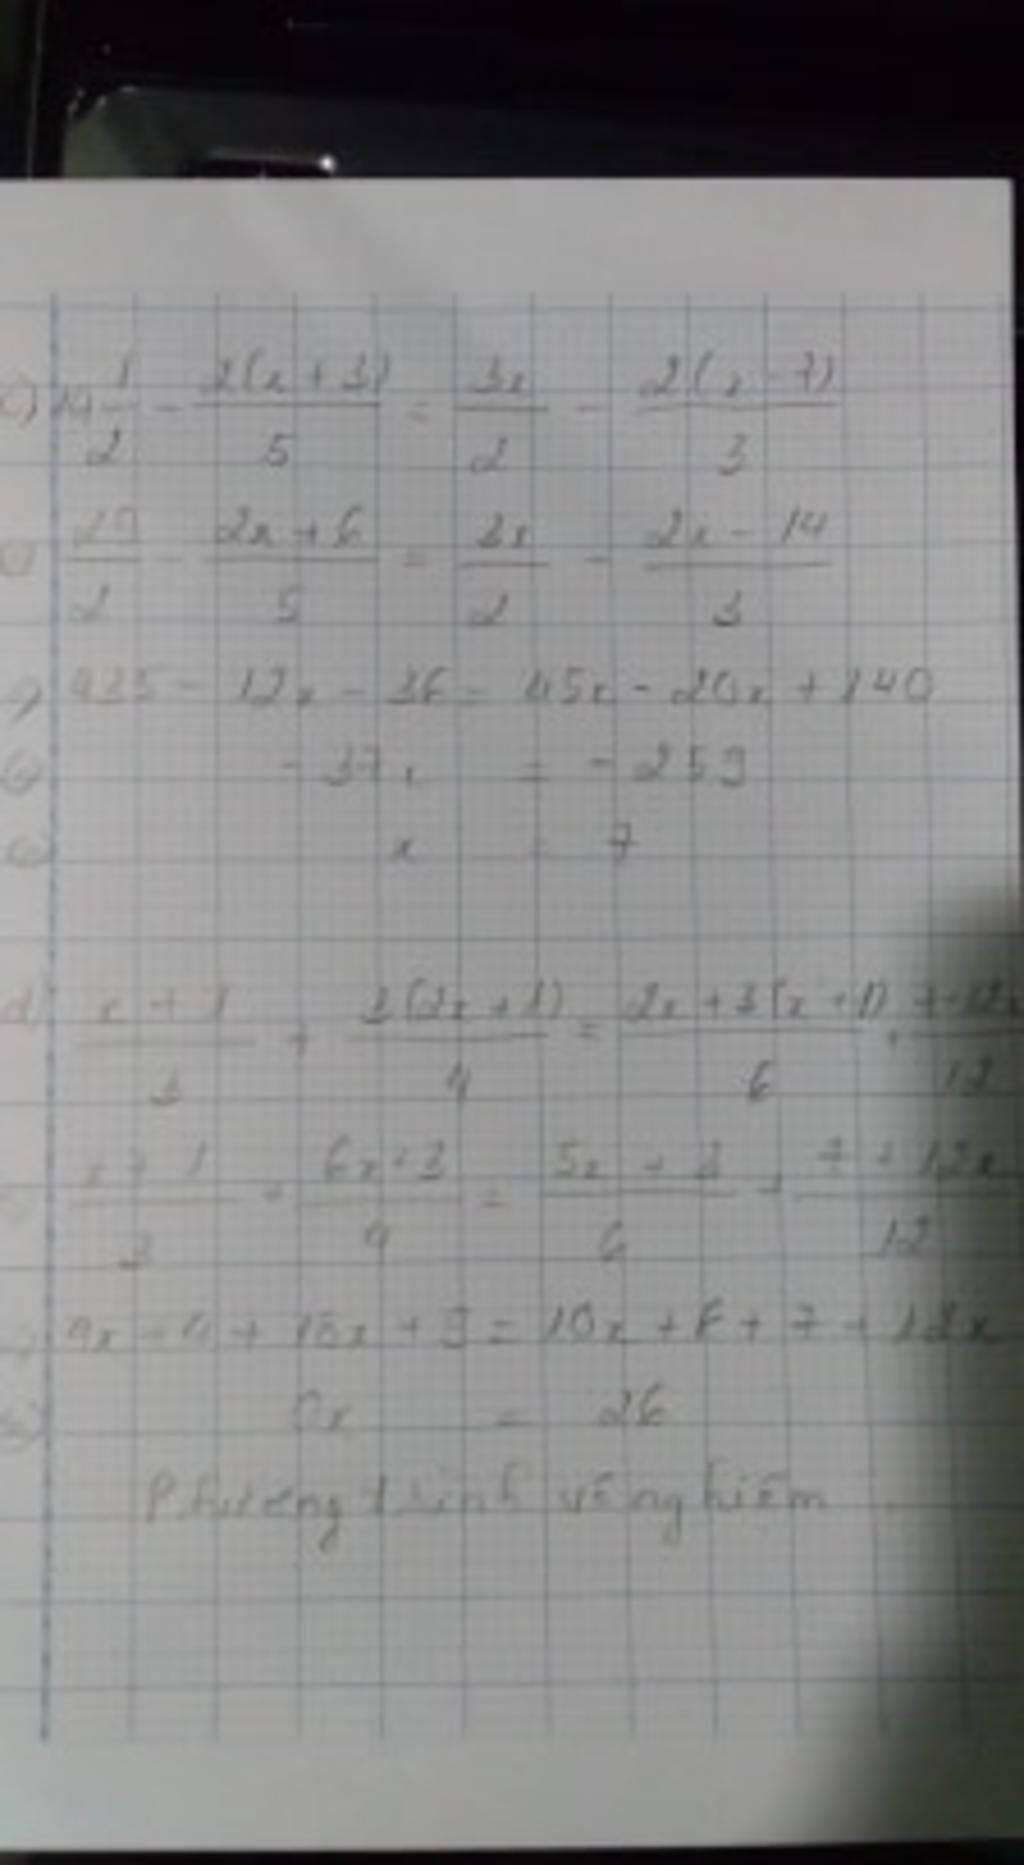 c) 14 1/2 - 2(x + 3)/5 = 3x/2 - 2(x - 7)/3
29/2 - (2x + 6)/5 = 3x/2 - (2x - 14)/3
435 - 12x - 36 = 45x - 20x + 140
- 37x = - 259
x = 7
d) (x + 1)/3 + 3(2x + 1)/4 = (2x + 3(x + 1))/6 + 12
(x + 1)/3 + (6x + 3)/4 = (5x + 3)/6 + (7 + 12x)/12
4x + 4 + 18x + 9 = 10x + 6 + 7 + 12x
0x = 26
Phương trình vô nghiệm